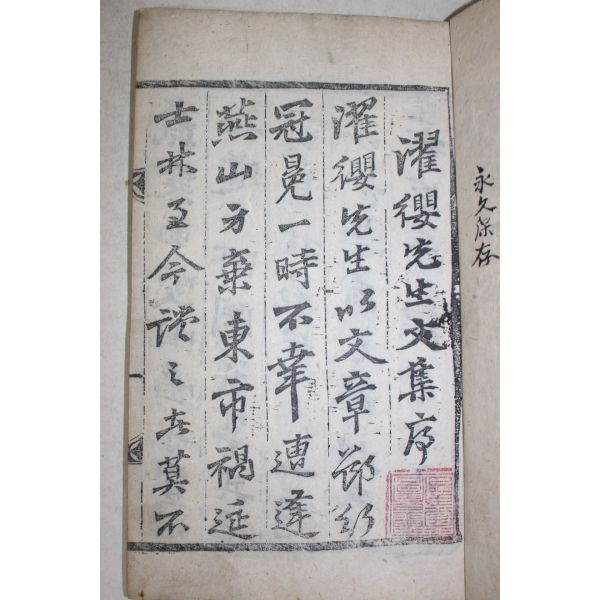 永久保存
濯纓先生文集序
濯纓先生以文章節行
冠冕一時不幸遭逢
燕山身棄東市禍延
士林至今談之者莫不